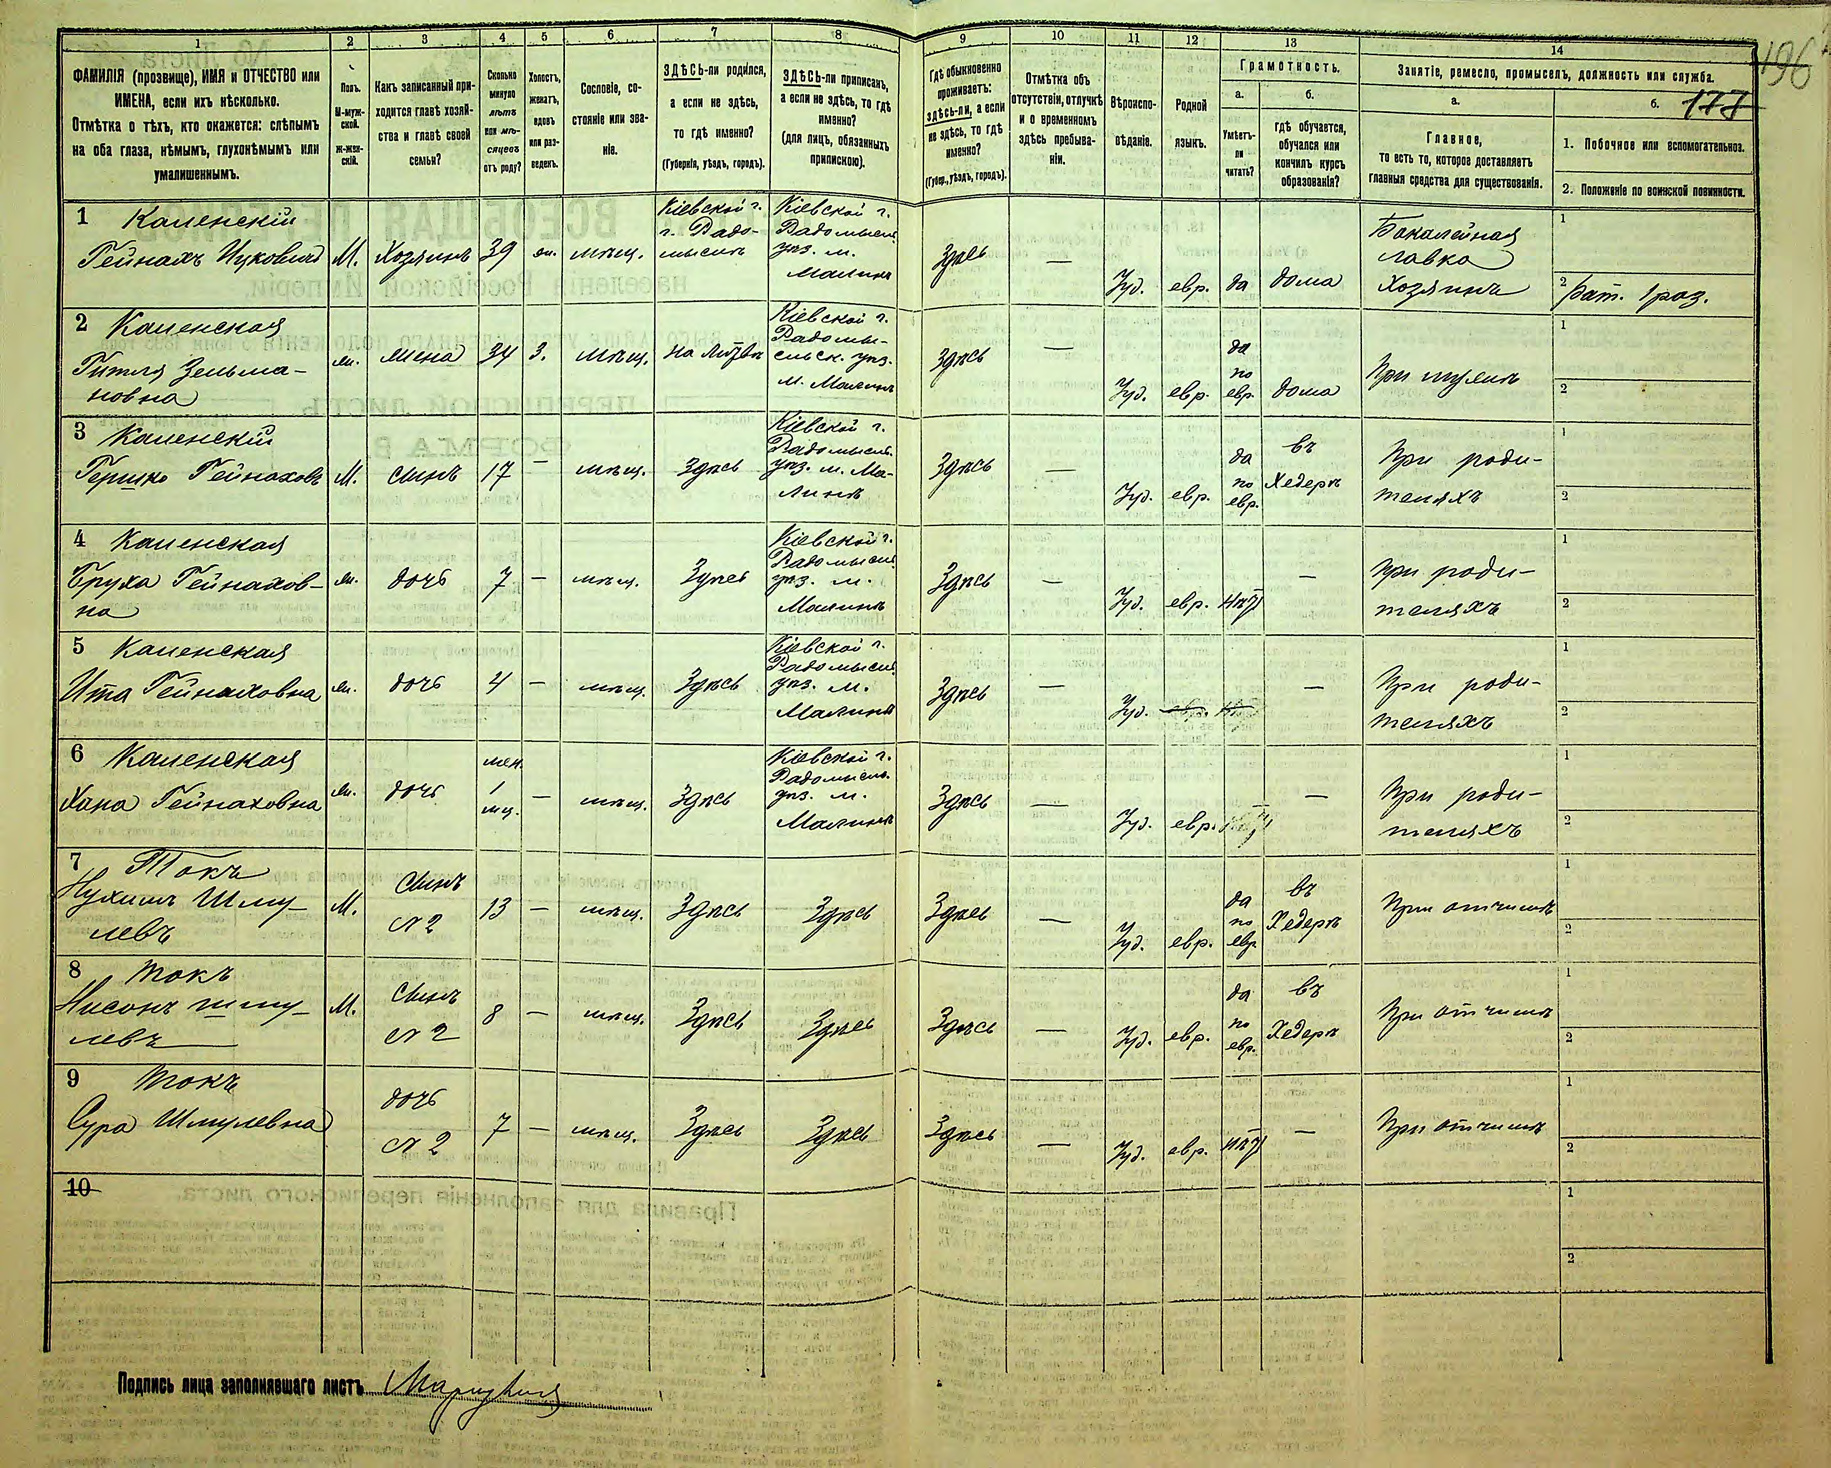 196
177
1 2 3 4 5 6 7 8 9 10 11 12 13 14
ФАМИЛІЯ (прозвище), ИМЯ и ОТЧЕСТВО или
ИМЕНА, если ихъ нѣсколько.
Отмѣтка о тѣхъ, кто окажется: слѣпымъ
на оба глаза, нѣмымъ, глухонѣмымъ или
умалишеннымъ.
Полъ.
М-муж-
ской.
Ж-жен-
скій.
Какъ записанный при-
ходится главѣ хозяй-
ства и главѣ своей
семьи?
Сколько
минуло
лѣтъ
или мѣ-
сяцевъ
отъ роду?
Холостъ,
женатъ,
вдовъ
или раз-
веденъ.
Сословіе, со-
стояніе или зва-
ніе.
ЗДѢСЬ-ли родился,
а если не здѣсь,
то гдѣ именно?
(Губернія, уѣздъ, городъ).
ЗДѢСЬ-ли приписанъ,
а если не здѣсь, то гдѣ
именно?
(для лицъ, обязанныхъ
припискою).
Гдѣ обыкновенно
проживаетъ:
здѣсь-ли, а если
не здѣсь, то гдѣ
именно?
(Губер., уѣздъ, городъ).
Отмѣтка объ
отсутствіи, отлучкѣ
и о временномъ
здѣсь пребыва-
ніи.
Вѣроиспо-
вѣданіе.
Родной
языкъ.
Грамотность.
а. б.
Умѣетъ-
ли
читать?
гдѣ обучается,
обучался или
кончилъ курсъ
образованія?
Занятіе, ремесло, промыселъ, должность или служба.
а. б.
Главное,
то есть то, которое доставляетъ
главныя средства для существованія.
1. Побочное или вспомогательное.
2. Положеніе по воинской повинности.
1 Каменскій
Гейнахъ Ицковичъ
М.
Хозяинъ
39
жн.
мѣщ.
Кіевской г.
г. Радо-
мыслъ
Кіевской г.
Радомысл.
уѣз. м.
Малинъ
Здѣсь
—
Іуд.
евр.
да
дома
Бакалейная
лавка
Хозяинъ
1
2 Рат. 1 раз.
2 Каменская
Гитля Зельма-
новна
жн.
жена
34
З.
мѣщ.
Кіевской г.
Радомы-
сльск. уѣз.
м. Малинъ
Здѣсь
—
Іуд.
евр.
да
по
евр.
дома
1
2
3 Каменскій
Гершко Гейнаховъ
М.
сынъ
17
—
мѣщ.
Здѣсь
Кіевской г.
Радомысл.
уѣз. м. Ма-
линъ
Здѣсь
—
Іуд.
евр.
да
по
евр.
въ
Хедерѣ
При роди-
теляхъ
1
2
4 Каменская
Бруха Гейнахов-
на
жн.
дочь
7
—
мѣщ.
Здѣсь
Кіевской г.
Радомысл.
уѣз. м.
Малинъ
Здѣсь
—
Іуд.
евр.
нѣтъ
—
При роди-
теляхъ
1
2
5 Каменская
Ита Гейнаховна
жн.
дочь
4
—
мѣщ.
Здѣсь
Кіевской г.
Радомысл.
уѣз. м.
Малинъ
Здѣсь
—
Іуд.
—
При роди-
теляхъ
1
2
6 Каменская
Хана Гейнаховна
жн.
дочь
мен.
1
мц.
—
мѣщ.
Здѣсь
Кіевской г.
Радомысл.
уѣз. м.
Малинъ
Здѣсь
—
Іуд.
евр.
—
При роди-
теляхъ
1
2
7 Токъ
Нухимъ Шму-
левъ
М.
Сынъ
№ 2
13
—
мѣщ.
Здѣсь
Здѣсь
Здѣсь
—
Іуд.
евр.
да
по
евр.
въ
Хедерѣ
При отчимѣ
1
2
8 Токъ
Нисонъ Шму-
левъ
М.
Сынъ
№ 2
8
—
мѣщ.
Здѣсь
Здѣсь
Здѣсь
—
Іуд.
евр.
да
по
евр.
въ
Хедерѣ
При отчимѣ
1
2
9 Токъ
Сура Шмулевна
дочь
№ 2
7
—
мѣщ.
Здѣсь
Здѣсь
Здѣсь
—
Іуд.
евр.
нѣтъ
—
При отчимѣ
1
2
10
1
2
Подпись лица заполнявшаго листъ